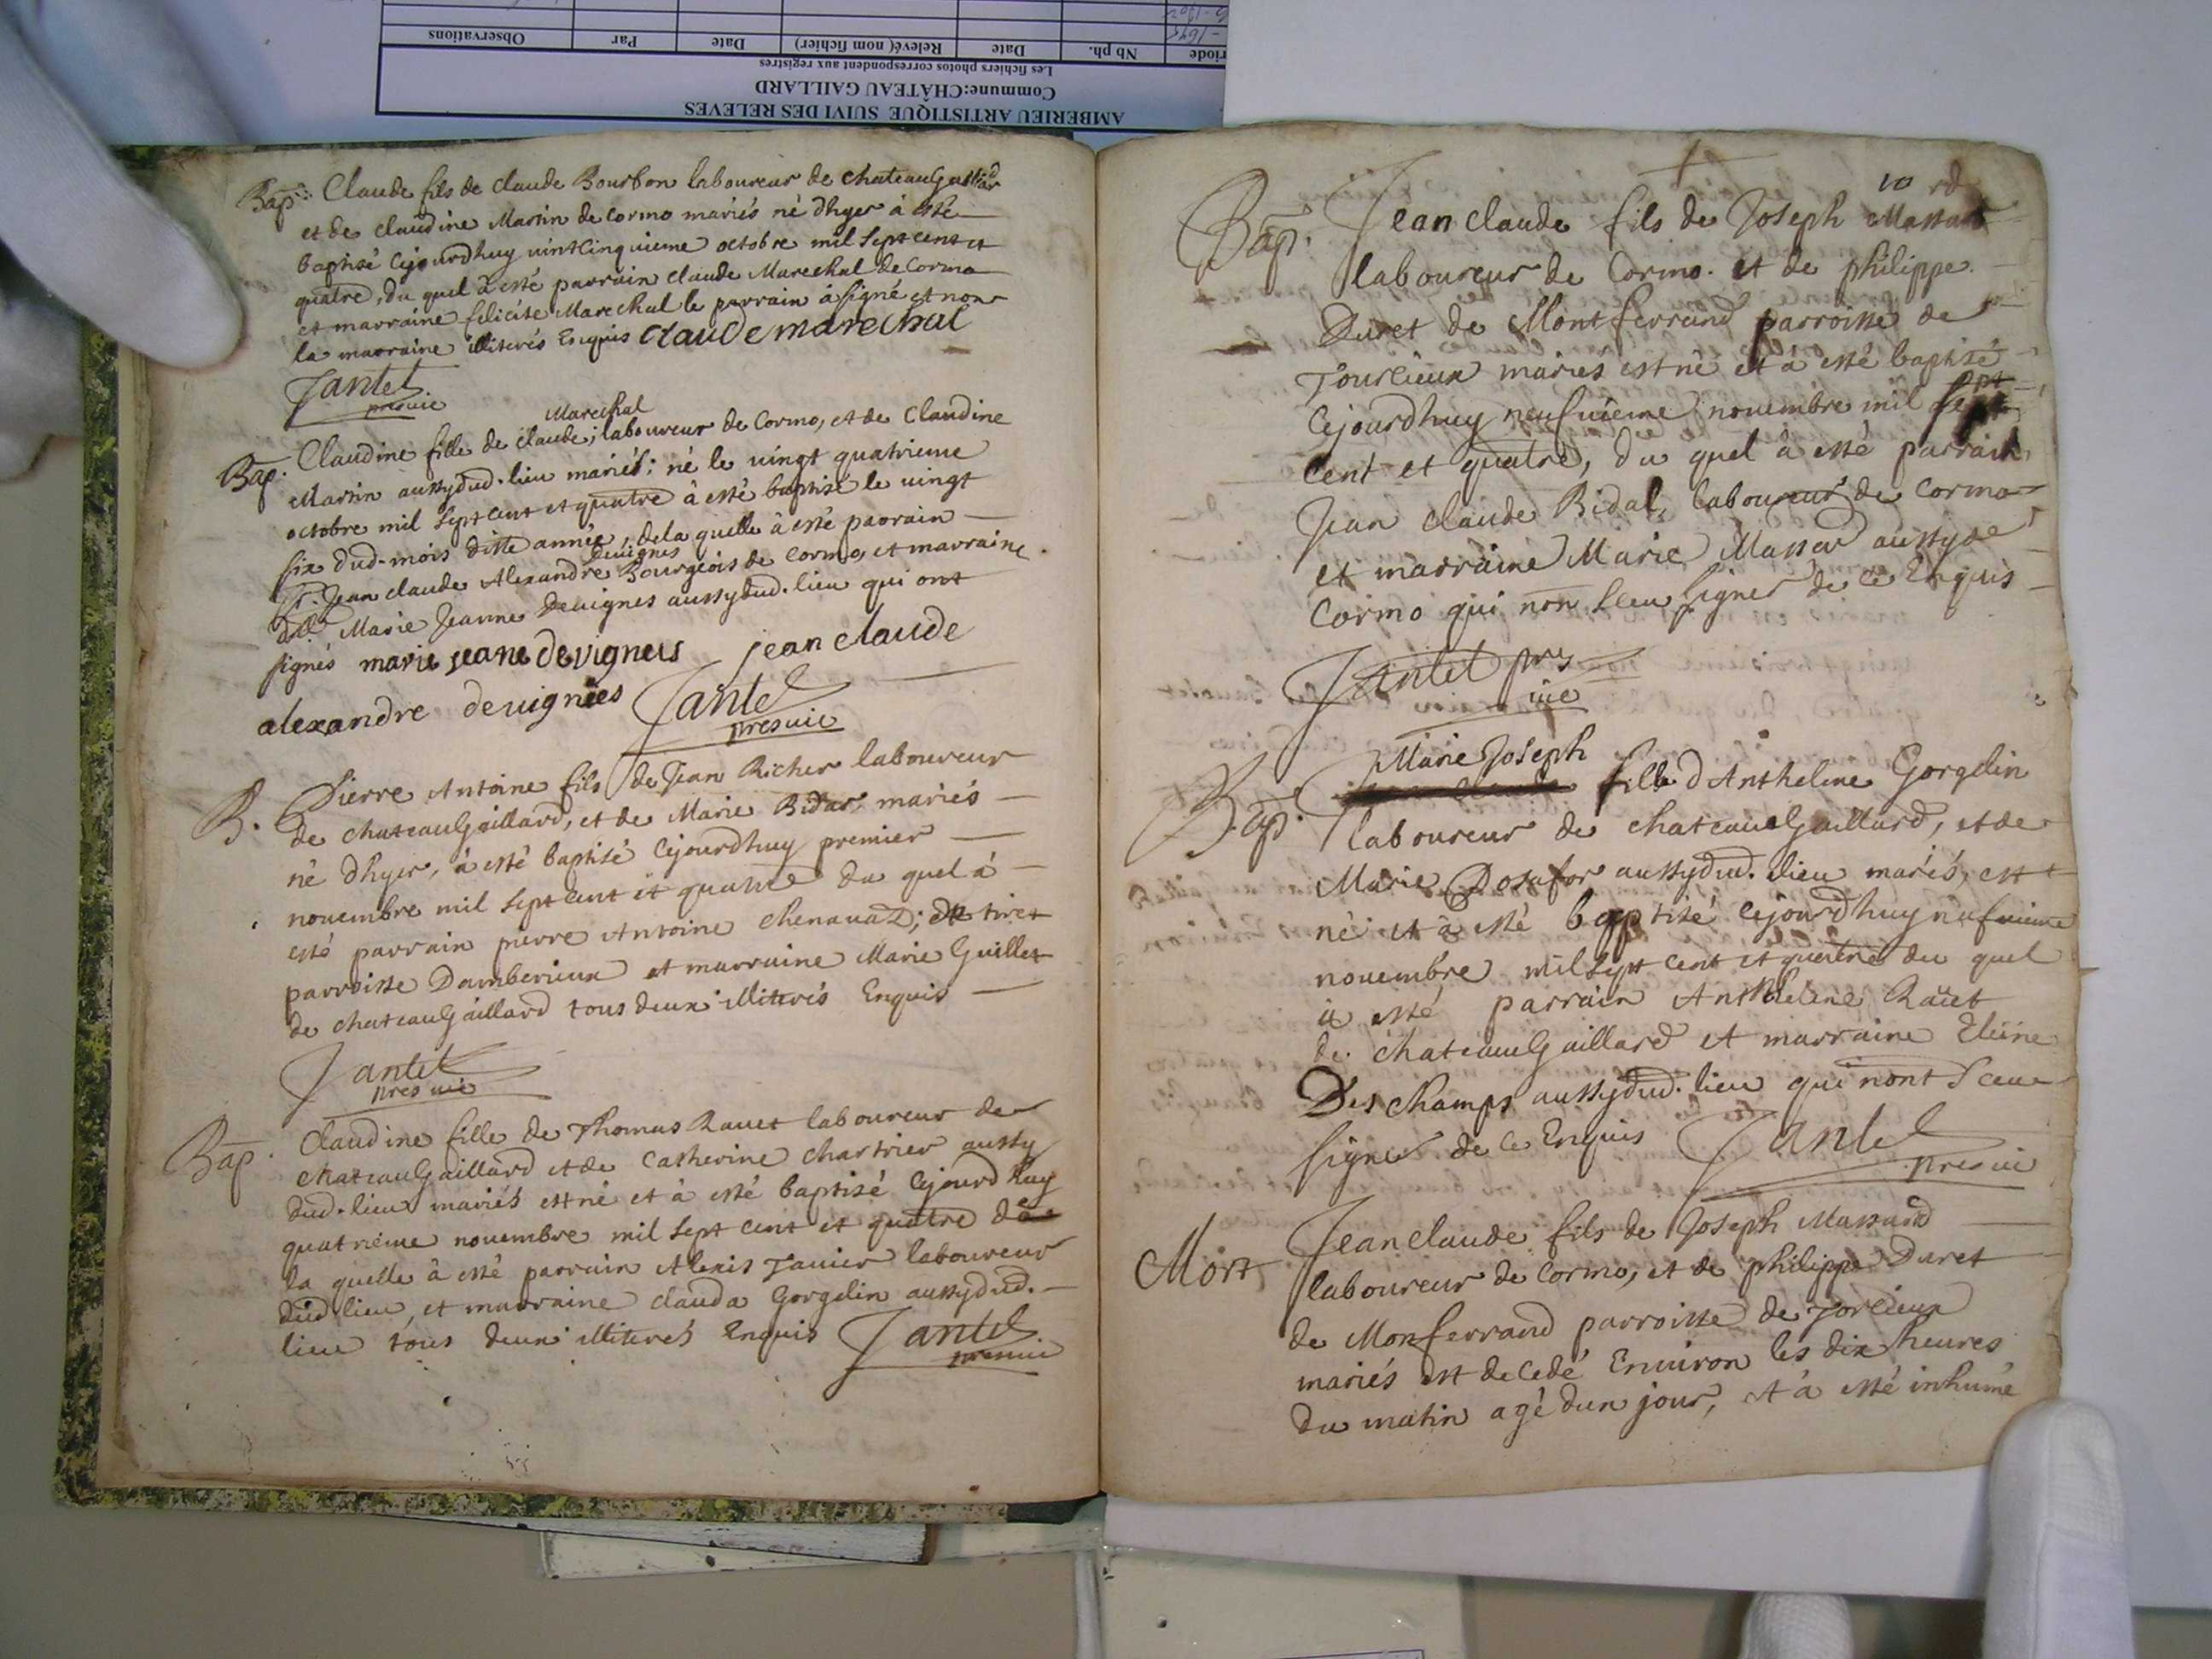 AMBERIEU ARTISTIQUE SUIVI DES RELEVES
Commune:CHÂTEAU GAILLARD
Les fichiers photos correspondent aux registres
riode Nb ph. Date Relevé( nom fichier) Date Par Observations
Bap. Claude fils de claude Bourbon laboureur de chateauGalliard
et de claudine Martin de Cormo mariés né dhyer à esté
baptisé cejourdhuy vintcinquieme octobre mil sept cent et
quatre, du quel à esté parrain claude Marechal de Cormo
et marraine felicite Marechal le parrain à signé et non
la marraine illiterés Enquis claude marechal
Jantet
pres vic
Marechal
Bap. Claudine fille de claude; laboureur de Cormo, et de Claudine
Martin aussydud. lieu mariés; né le vingt quatrieme
octobre mil sept cent et quatre à esté baptisé le vingt
six dud. mois ditte année, de la quelle à esté parrain
devignes
Sr. Jean claude Alexandre Bourgeois de Cormo, et marraine
Dlle Marie Jeanne Devignes aussydud. lieu qui ont
signés marie jeane devigneus jean claude
alexandre devignies Jantet
pres vic
B. Pierre Antoine fils de Jean Richer laboureur
de chateauGaillard, et de Marie Bidar mariés
né dhyer, à esté baptisé cejourdhuy premier
novembre mil sept cent et quatre du quel à
esté parrain pierre Antoine chenavaz; de tiret
parroisse Damberieux et marraine Marie Guillet
de chateauGaillard tous deux illiterés Enquis
Jantet
pres vic
Bap. Claudine fille de Thomas Ravet laboureur de
chateauGaillard et de Catherine chartrier aussy
dud. lieu mariés est né et à esté baptisé cejourdhuy
quatrieme novembre mil sept cent et quatre de
la quelle à esté parrain Alexis Janier laboureur
dud lieu, et marraine clauda Gorgelin aussydud.
lieu tous deux illiterés Enquis Jantet
pres vic
10
Bap. Jean claude fils de Joseph Massard
laboureur de Cormo. et de philippe
Duret de Montferrand parroisse de
Tourcieux mariés est né et à esté baptisé
cejourdhuy neufvieme novembre mil sept
cent et quatre, du quel à esté parrain
Jean claude Bidal, laboureur de Cormo
et marraine Marie Massar aussy de
Cormo qui non sceu signer de ce Enquis
Jantet prs
vic
Marie Joseph
Bap. fille d Anthelme Gorgelin
laboureur de chateauGaillard, et de
Marie Dosafor aussydud. lieu mariés, est
né et à esté baptisé cejourdhuy neufvieme
novembre mil sept cent et quatre du quel
à esté parrain Anthelme Ravet
de chateauGaillard et marraine Eleine
Des champs aussydud. lieu qui nont sceu
signer de ce Enquis Jantet
pres vic
Mort Jean claude fils de Joseph Massard
laboureur de Cormo, et de philippe Duret
de Monferrand parroisse de Torcieux
mariés est decedé Environ les dix heures
du matin agé dun jour, et à esté inhumé